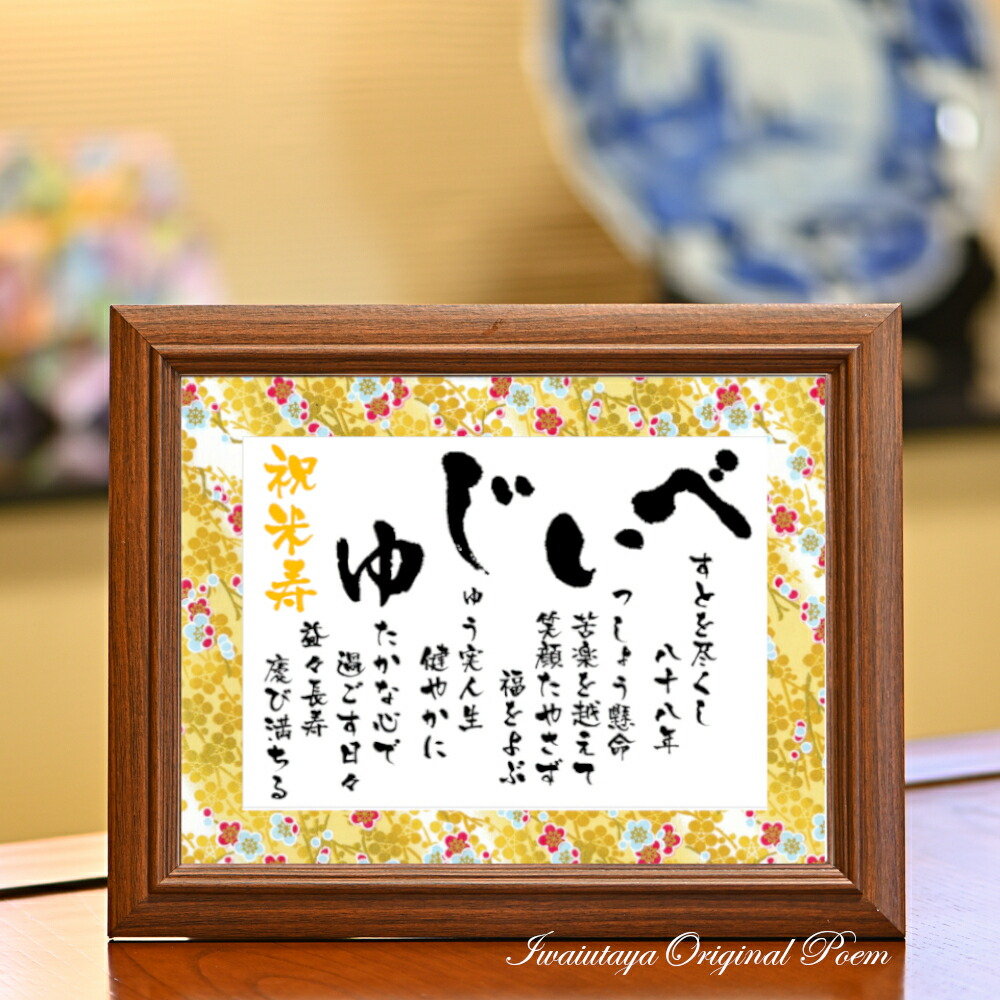 べすとを尽くし
八十八年
いっしょう懸命
苦楽を越えて
笑顔たやさず
福をよぶ
じゅう実人生
健やかに
ゆたかな心で
過ごす日々
益々長寿
慶び満ちる
祝米寿
Iwaiutaya Original Poem